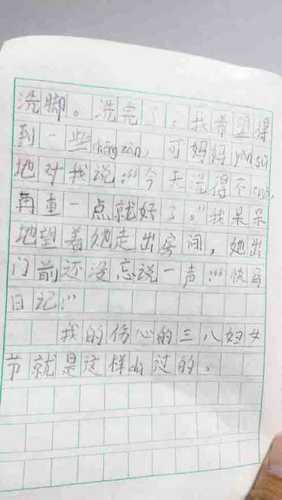 洗脚。洗完了，我希望得
到一些chēng zàn，可妈妈yán sù
地对我说："今天洗得不cuò，
再重一点就好了。"我呆呆
地望着她走出房间，她出
门前还没忘说一声："快写
日记！"
我的伤心的三八妇女
节就是这样dù过的。